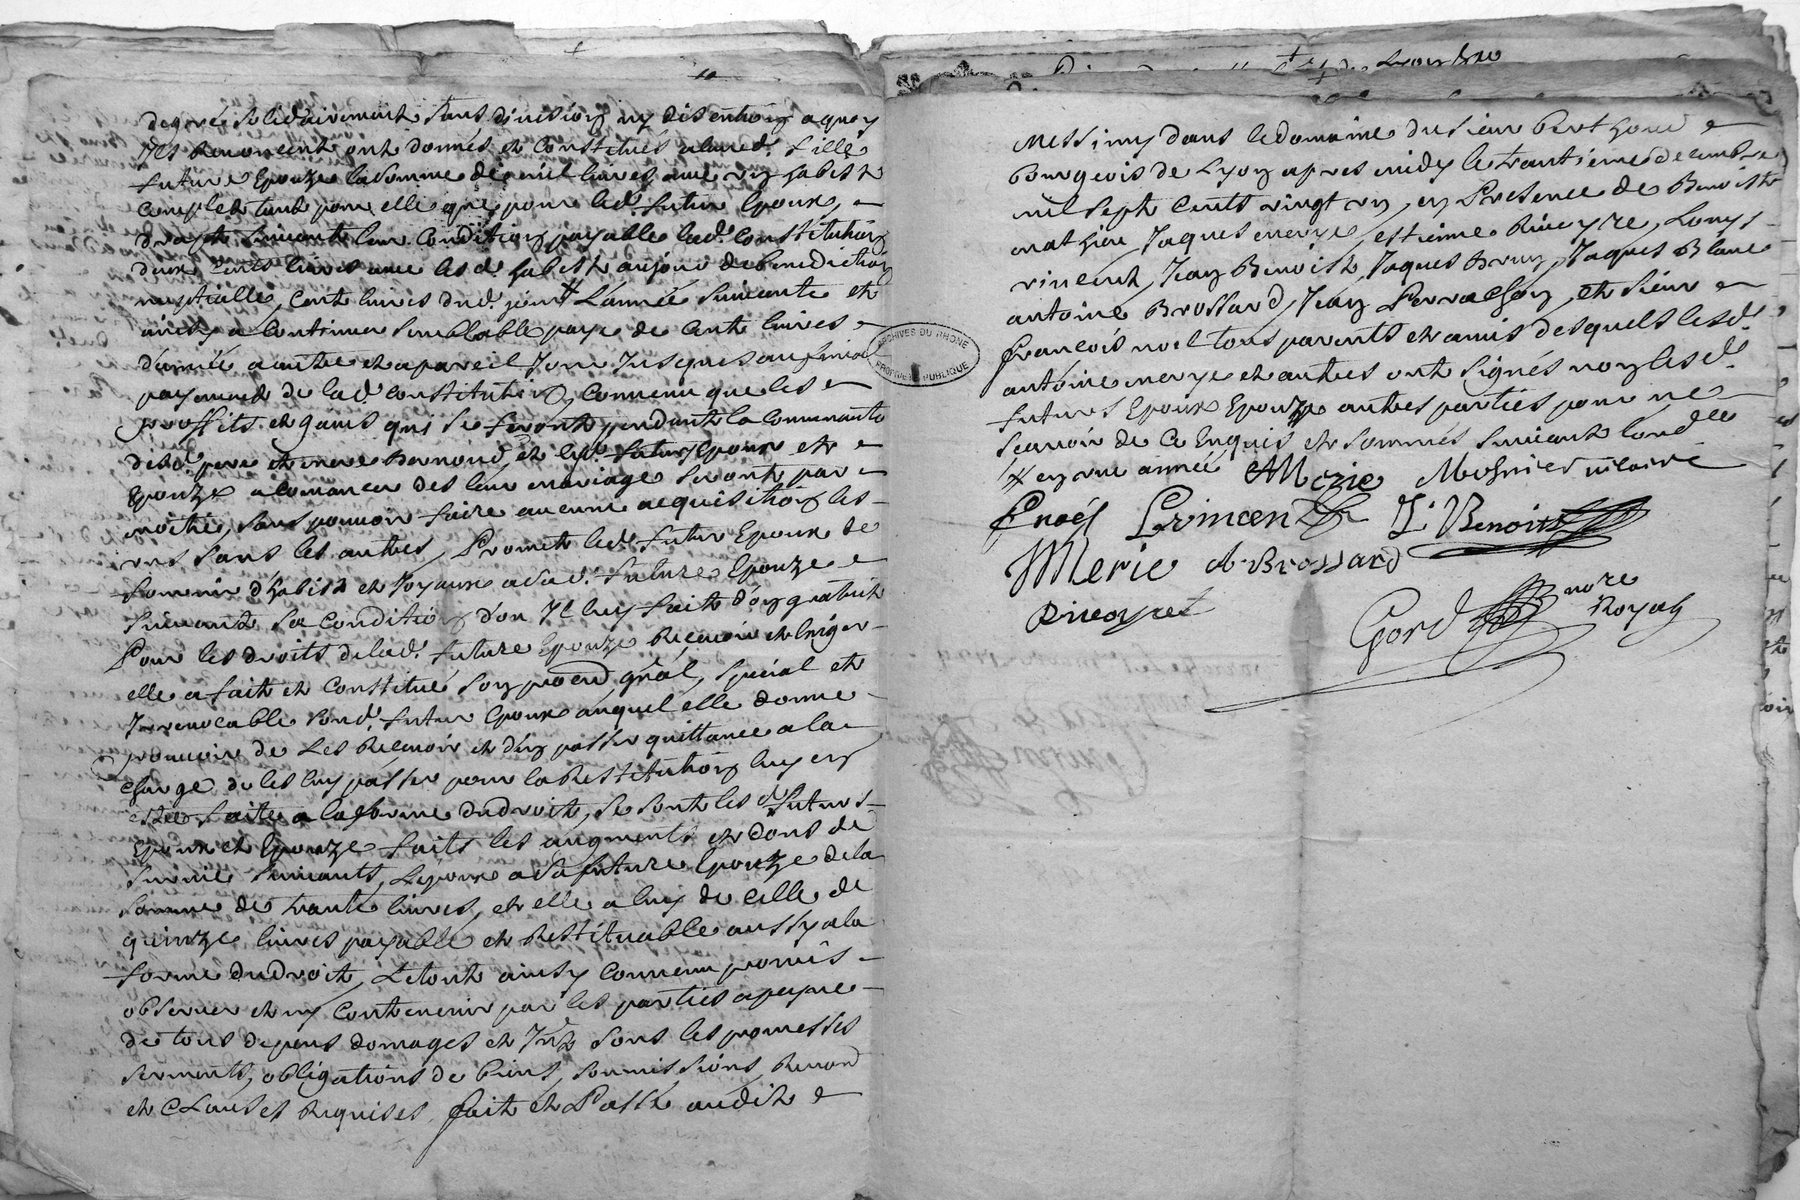 degré solidairement sans division ny disention a quoy
Ils Renoncent ont donnés et Constitués a lad. fille
future Epouze la somme de mil livres avec un habist
complet tant pour elle que pour led. futur Epoux,
payable lad. Constitution
deux Cents livres avec lesd. habist au jour de benediction
nuptialle, Cent livres dud. jour # L'année suivante et
ainsy a Continuer semblable paye de Cent livres
d'année a autre et a pareil Jour Jusques au final
payement de lad. constitution, Convenu que les
proffits et gains qui se feront pendant la Communauté
desd. pere et mere Bernond et lesd. futurs Epoux et
Epouze a Comancer des leur mariage seront par
moitié, sans pouvoir faire aucune acquisition les
uns sans les autres, Promet led. futur Epoux de
fournir d'habist et Joyaux a sad. future Epouze
suivant sa Condition d'on Il luy fait don gratuit
Pour les droits de lad. future Epouze Reçevoir et Exiger
elle a fait et Constitué son proud gnal, special et
Irrevocable sond. futur Epoux auquel elle donne
pouvoir de Les Reçevoir et d'en passer quittance a la
charge de les luy passer pour la Restitution luy en
estre faitte a la forme du droit, se sont les d. futurs
Epoux et Epouze faits les augments et dons de
survie suivants, L'epoux a sa future Epouze de la
somme de trante livres, et elle a luy de celle de
quinze livres payable et Restituable aussy a la
forme du droit, Le tout ainsy Convenu promis
observer et ny Contrevenir par les parties a peyne
de tous depens domages et Int. sous les promesses
serments, obligations de biens, soumissions, Renon
et Clauses Requises fait et Passé audit
Messimy dans le domaine du sieur Berthoud
Bourgeois de Lyon apres midy le trantieme decembre
mil sept Cents vingt un, en Presence de Benoist
mathieu, Jaques merye, estienne Riveyre, Louys
vincent, Jean Benoist, Jaques Brun, Jaques Blanc
antoine Brossard, Jean Perrachon, et sieur
françois noel tous parents et amis desquels lesd.
antoine merye et autres ont signés non lesd.
futurs Epoux Epouze autres parties pour ne
sçavoir de Ce Enquis et sommés suivant l'ord.
# en une année AMerie Mesnier vicaire
fnoel J. Benoist
JMerie A Brossard
Gord nore
Royal
ARCHIVES DU RHONE
PROPRIÉTÉ PUBLIQUE